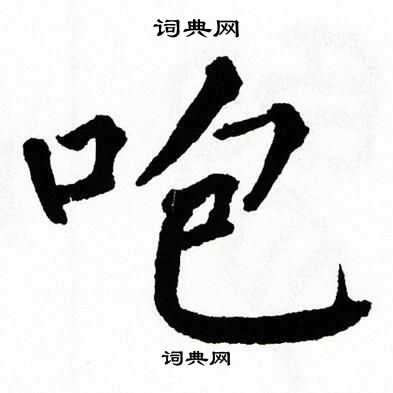 词典网
咆
词典网